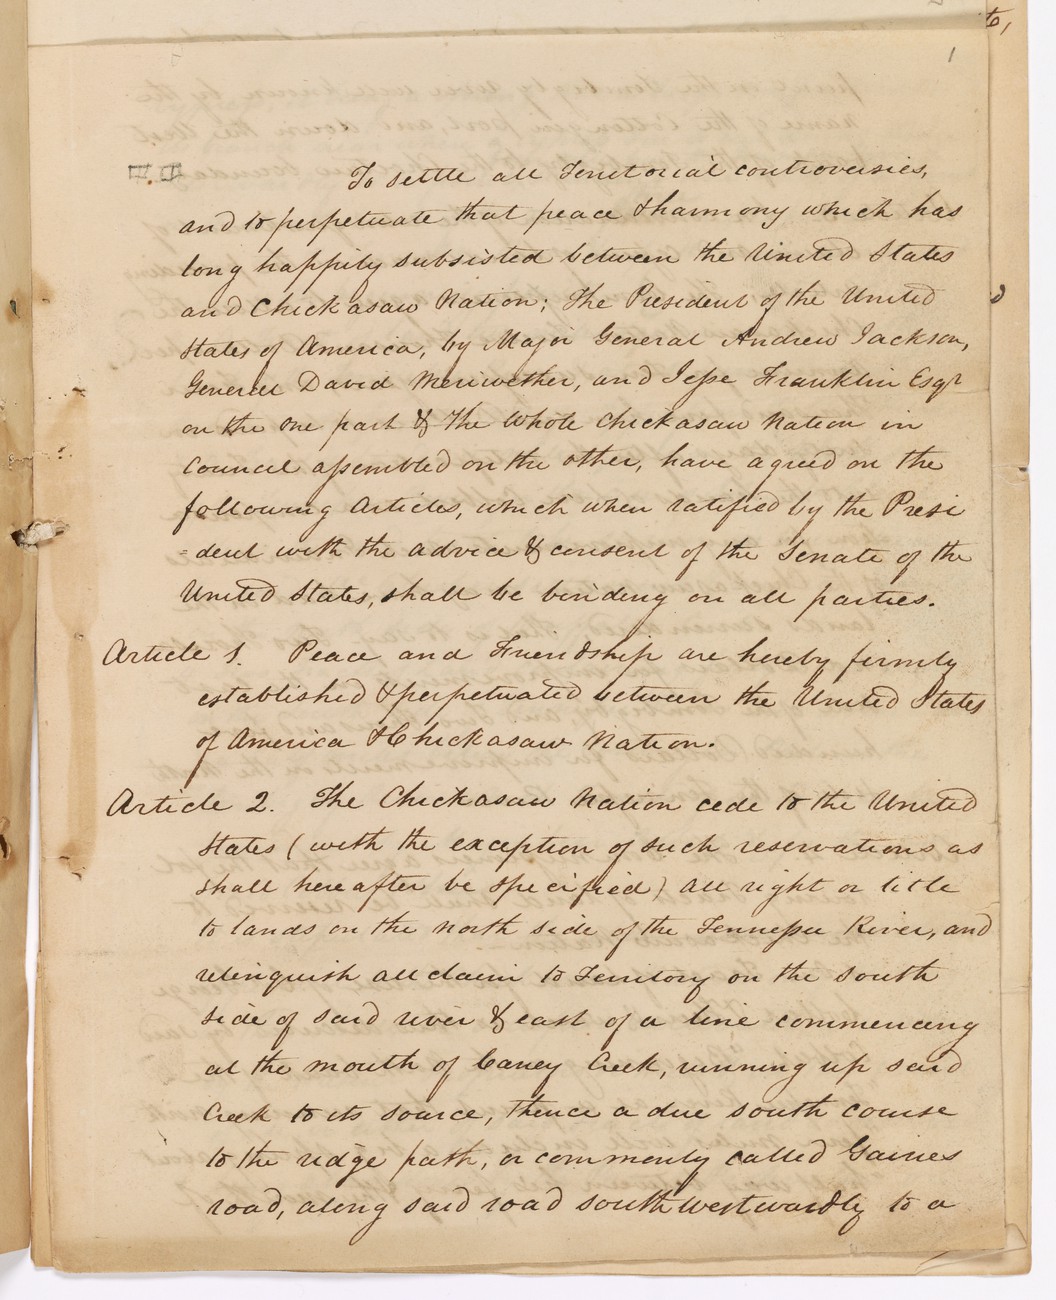 to,
1
To settle all Territorial controversies,
and to perpetuate that peace & harmony which has
long happily subsisted between the United States
and Chickasaw Nation; The President of the United
States of America, by Major General Andrew Jackson,
General David Meriwether, and Jesse Franklin Esqr
on the one part & The Whole Chickasaw Nation in
Council assembled on the other, have agreed on the
following Articles, which when ratified by the Presi
=dent with the advice & consent of the Senate of the
United States, shall be binding on all parties.
Article 1. Peace and Friendship are hereby firmly
established & perpetuated between the United States
of America & Chickasaw Nation.
Article 2. The Chickasaw Nation cede to the United
States (with the exception of such reservations as
shall hereafter be specified) all right or title
to lands on the north side of the Tennessee River, and
relinquish all claim to Territory on the south
side of said river & east of a line commencing
at the mouth of Caney Creek, running up said
Creek to its source, thence a due south course
to the ridge path, or commonly called Gaines
road, along said road south westwardly to a